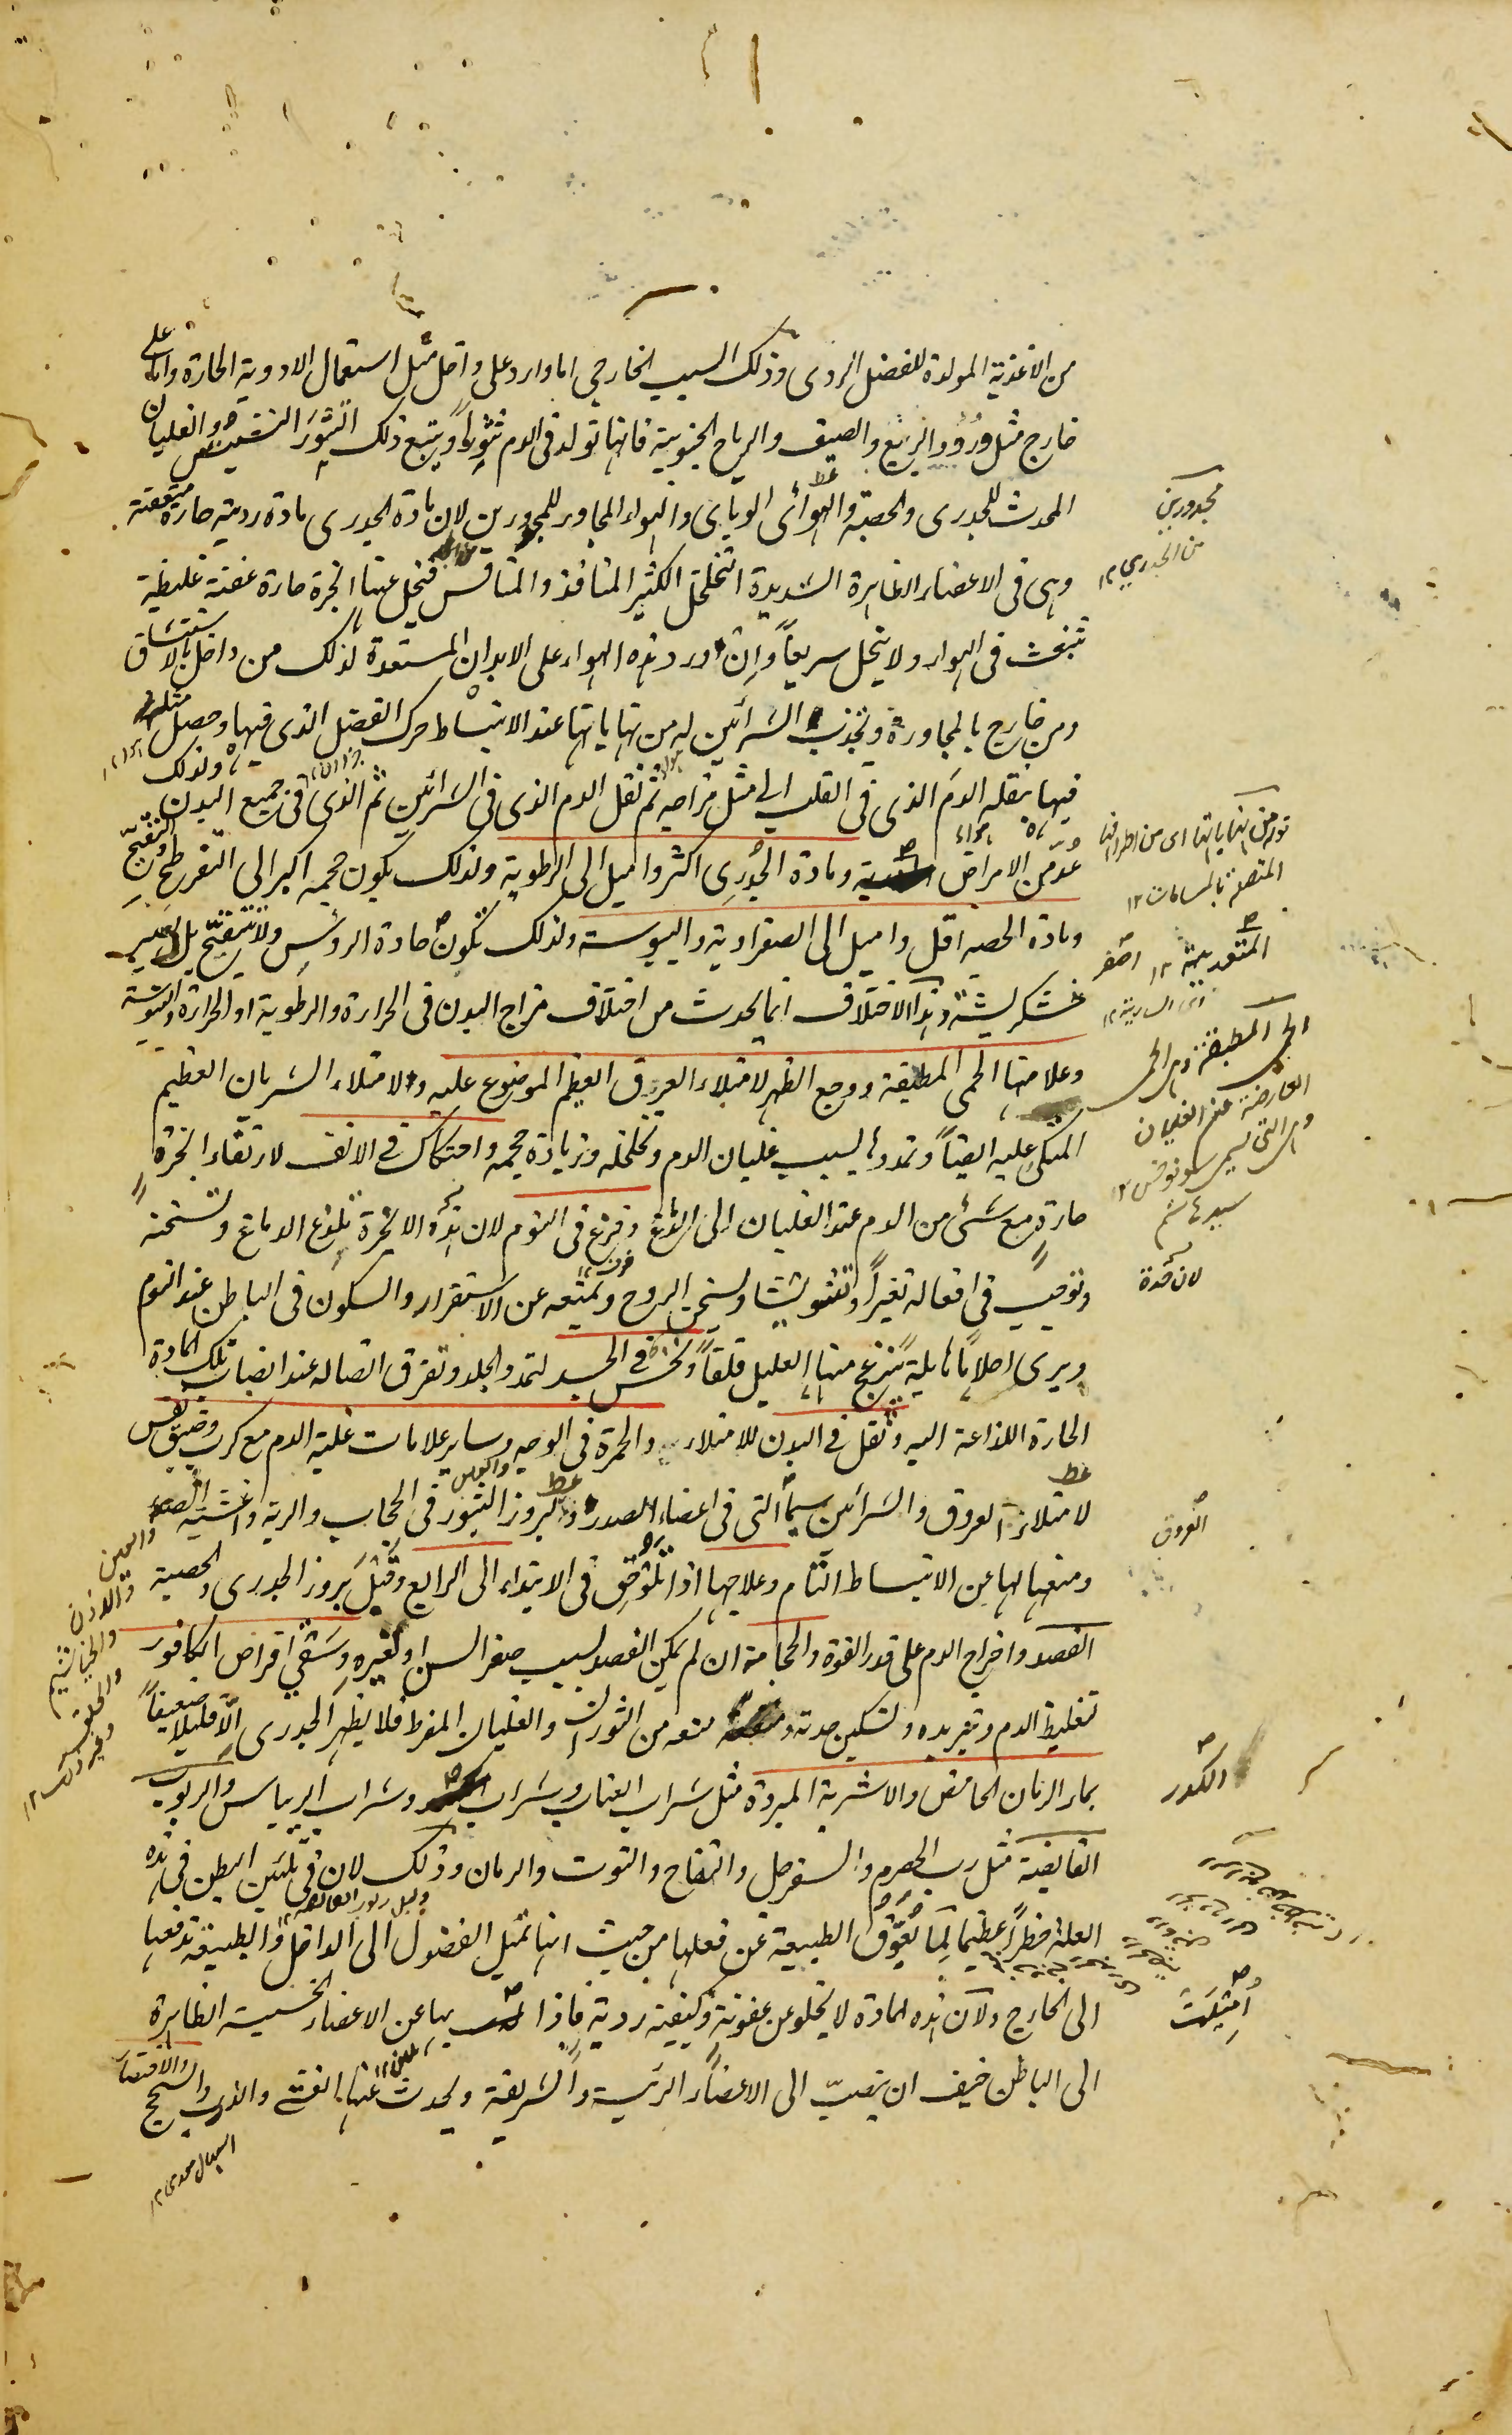 من الاغذية المولدة للفضل الردى وذلك السبب الخارجي اما وارد على داخل مثل استعمال الادوية الحارة واما على
خارج مثل ورود الربيع والصيف والرياح الجنوبية فانها تولد فى الدم ثورانا ويتبع ذلك الثوران النشيش والغليان
المحدث للجدرى والحصبة والهواء الوبائى والهواء المجاور للمجدورين لان مادة الجدرى مادة ردية حارة متعفنة
وهى فى الاعضاء الظاهرة الشديدة التخلخل الكثير المنافذ والمنافس فيتحلل عنها ابخرة حارة عفنة غليظة
تنبعث فى الهواء ولا يتحل سريعاً وان ورد هذه الهواء على الابدان المستعدة لذلك من داخل بالاستنشاق
ومن خارج بالمجاورة وتجذب الشرائين له من نهاياتها عند الانبساط حرك الفضل الذى فيها وحصل
فيها ينقله الدم الذى فى القلب الى مثل مزاجه ثم نقل الدم الذى فى الشرائين ثم الذى فى جميع البدن ولذلك
عد من الامراض ومادة الجدرى اكثر واميل الى الرطوبة ولذلك يكون حجمه اكبر الى التفرطح والتفتح
ومادة الحصبة اقل واميل الى الصفراوية واليبوسة ولذلك تكون حادة الرؤس ولا تتفتح بل تصير
خشكريشة وهذا الاختلاف انما يحدث من اختلاف مزاج البدن فى الحرارة والرطوبة او الحرارة واليبوسة
وعلامتها الحمى المطبقة ووجع الظهر لامتلاء العرق العظيم الموضوع عليه ولامتلاء الشريان العظيم
المتكى عليه ايضاً وتمددها بسبب غليان الدم وتخلخله وزيادة حجمه واحتكاك فى الانف لارتقاء ابخرة
حارة مع شىء من الدم عند الغليان الى الدماغ وفزع فى النوم لان هذه الابخرة تلذع الدماغ وتسخنه
وتوجب فى افعاله تغيراً وتشويشا وتسخن الروح وتمنعه عن الاستقرار والسكون فى الباطن عند النوم
ويرى احلاماً هايلة ينزعج منها العليل قلقاً ونخس فى الجسد لتمدد الجلد وتفرق اتصاله عند انصباب تلك المادة
الحارة اللذاعة اليه وثقل فى البدن للامتلاء والحمرة فى الوجه وساير علامات غلبة الدم مع كرب وضيق نفس
لامتلاء العروق والشرائين سيما التى فى اعضاء الصدر ولبروز البثور فى الحجاب والرية واغشية الصدر
ومنعها لها عن الانبساط التام وعلاجها اذا تلوحق فى الابتداء الى الرابع وقبل بروز الجدرى والحصبة
الفصد واخراج الدم على قدر القوة والحجامة ان لم يمكن الفصد بسبب صغر السن او لغيره وسقى اقراص الكافور
تغليظ الدم وتبريده وتسكين حدته منعه من الثوران والغليان المفرط فلا يظهر الجدرى الا قليلا ضعيفاً
بماء الرمان الحامض والاشربة المبردة مثل شراب العناب وشراب وشراب الريباس والربوب
القابضة مثل رب الحصرم والسفرجل والتفاح والتوت والرمان وذلك لان فى تليين البطن فى هذه
العلة خطراً عظيما لما يعوق الطبيعة عن فعلها من حيث انها تميل الفضول الى الداخل والطبيعة تدفعها
الى الخارج ولان هذه المادة لا يخلو عن عفونة وكيفية ردية فاذا بها عن الاعضاء الخسيسة الظاهرة
الى الباطن خيف ان ينصب الى الاعضاء الرئيسة والشريفة ويحدث عنها الغشى والذرب والسحج
مجدورين
من الجدري ١٢
قوله من نهاياتها اى من اطرافها
المتصلة بالمسامات ١٢
المتعدية ١٢
الحمى المطبقة هى الحمى
العارضة عند الغليان
وهى التى تسمى سونوخس ١٢
سيد هاشم
لان مدة
العروق
الكدر
اميلت
والعين
والاذن
والخياشيم
والحلق
وغير ذلك ١٢